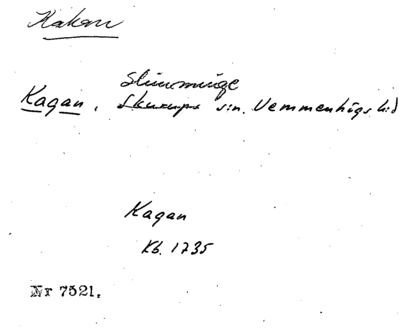 Kakan
Slimminge
Kagan, Skurups s:n. Vemmenhögs hd
Kagan
Kb. 1735
Nr 7521.